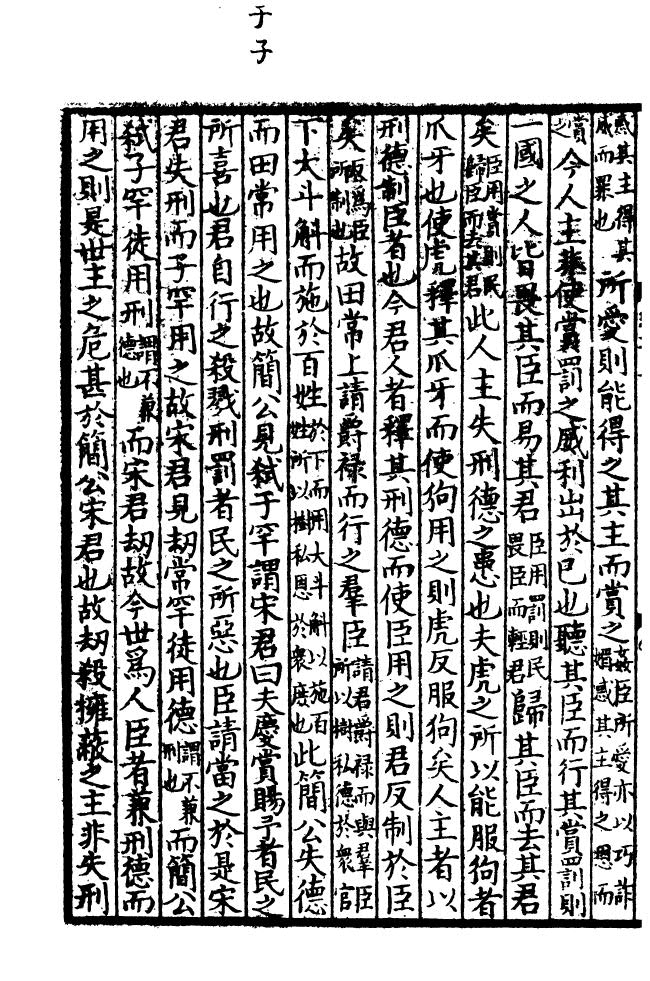 于子
惑其主得其威而罪也所愛則能得之其主而賞之姦臣所愛亦以巧詐媚惑其主得之恩而
賞之今人主非使賞罰之威利出於己也聽其臣而行其賞罰則
一國之人皆畏其臣而易其君臣用罰則民畏臣而輕君歸其臣而去其君
矣臣用賞則民歸臣而去其君此人主失刑德之患也夫虎之所以能服狗者
爪牙也使虎釋其爪牙而使狗用之則虎反服狗矣人主者以
刑德制臣者也今君人者釋其刑德而使臣用之則君反制於臣
矣反爲臣所制也故田常上請爵祿而行之羣臣請君爵祿而與羣臣所以樹私德於衆官
下大斗斛而施於百姓於下而用大斗斛以施百姓所以樹私恩於衆庶也此簡公失德
而田常用之也故簡公見弒于罕謂宋君曰夫慶賞賜予者民之
所喜也君自行之殺戮刑罰者民之所惡也臣請當之於是宋
君失刑而子罕用之故宋君見劫常罕徒用德謂不兼刑也而簡公
弒子罕徒用刑謂不兼德也而宋君劫故今世爲人臣者兼刑德而
用之則是世主之危甚於簡公宋君也故劫殺擁蔽之主非失刑